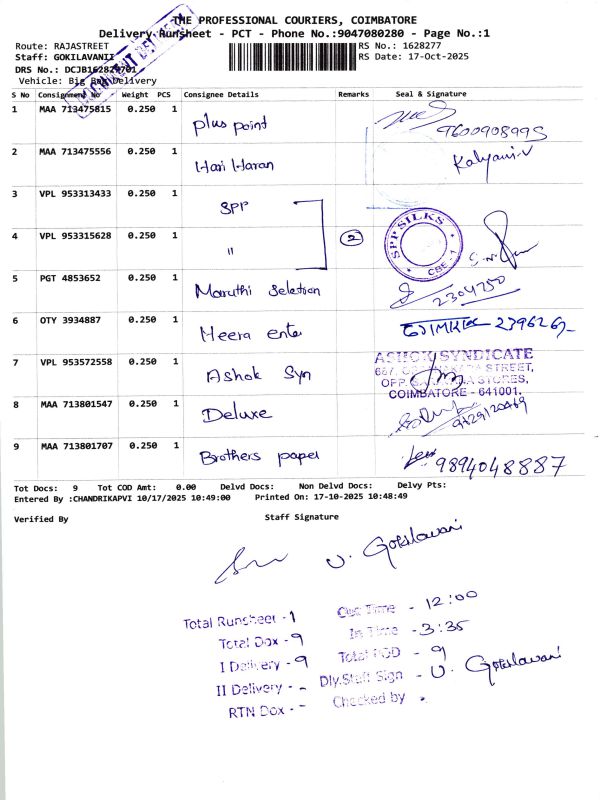 THE PROFESSIONAL COURIERS, COIMBATORE
Delivery Runsheet - PCT - Phone No.:9047080280 - Page No.:1
Route: RAJASTREET RS No.: 1628277
Staff: GOKILAVANII RS Date: 17-Oct-2025
DRS No.: DCJB162827701
Vehicle: Big Bag Delivery
S No Consignment No Weight PCS Consignee Details Remarks Seal & Signature
1 MAA 713475815 0.250 1 plus point 9600908995
2 MAA 713475556 0.250 1 Hari Haran Kalyani.V
3 VPL 953313433 0.250 1 SPP
4 VPL 953315628 0.250 1 " 2 SPP SILKS CBE - 1
5 PGT 4853652 0.250 1 Maruthi Seletion 2304750
6 OTY 3934887 0.250 1 Meera ente
7 VPL 953572558 0.250 1 Ashok Syn
ASHOK SYNDICATE
STREET,
OPP. STORES,
COIMBATORE - 641001.
8 MAA 713801547 0.250 1 Deluxe
9 MAA 713801707 0.250 1 Brothers papel 9894048887
Tot Docs: 9 Tot COD Amt: 0.00 Delvd Docs: Non Delvd Docs: Delvy Pts:
Entered By :CHANDRIKAPVI 10/17/2025 10:49:00 Printed On: 17-10-2025 10:48:49
Verified By Staff Signature
V. Gokilavani
Total Runsheet - 1 Out Time - 12:00
Total Dox - 9 In Time - 3:35
I Delivery - 9 Total POD - 9
II Delivery - - Dly.Staff Sign - V. Gokilavani
RTN Dox - - Checked by -